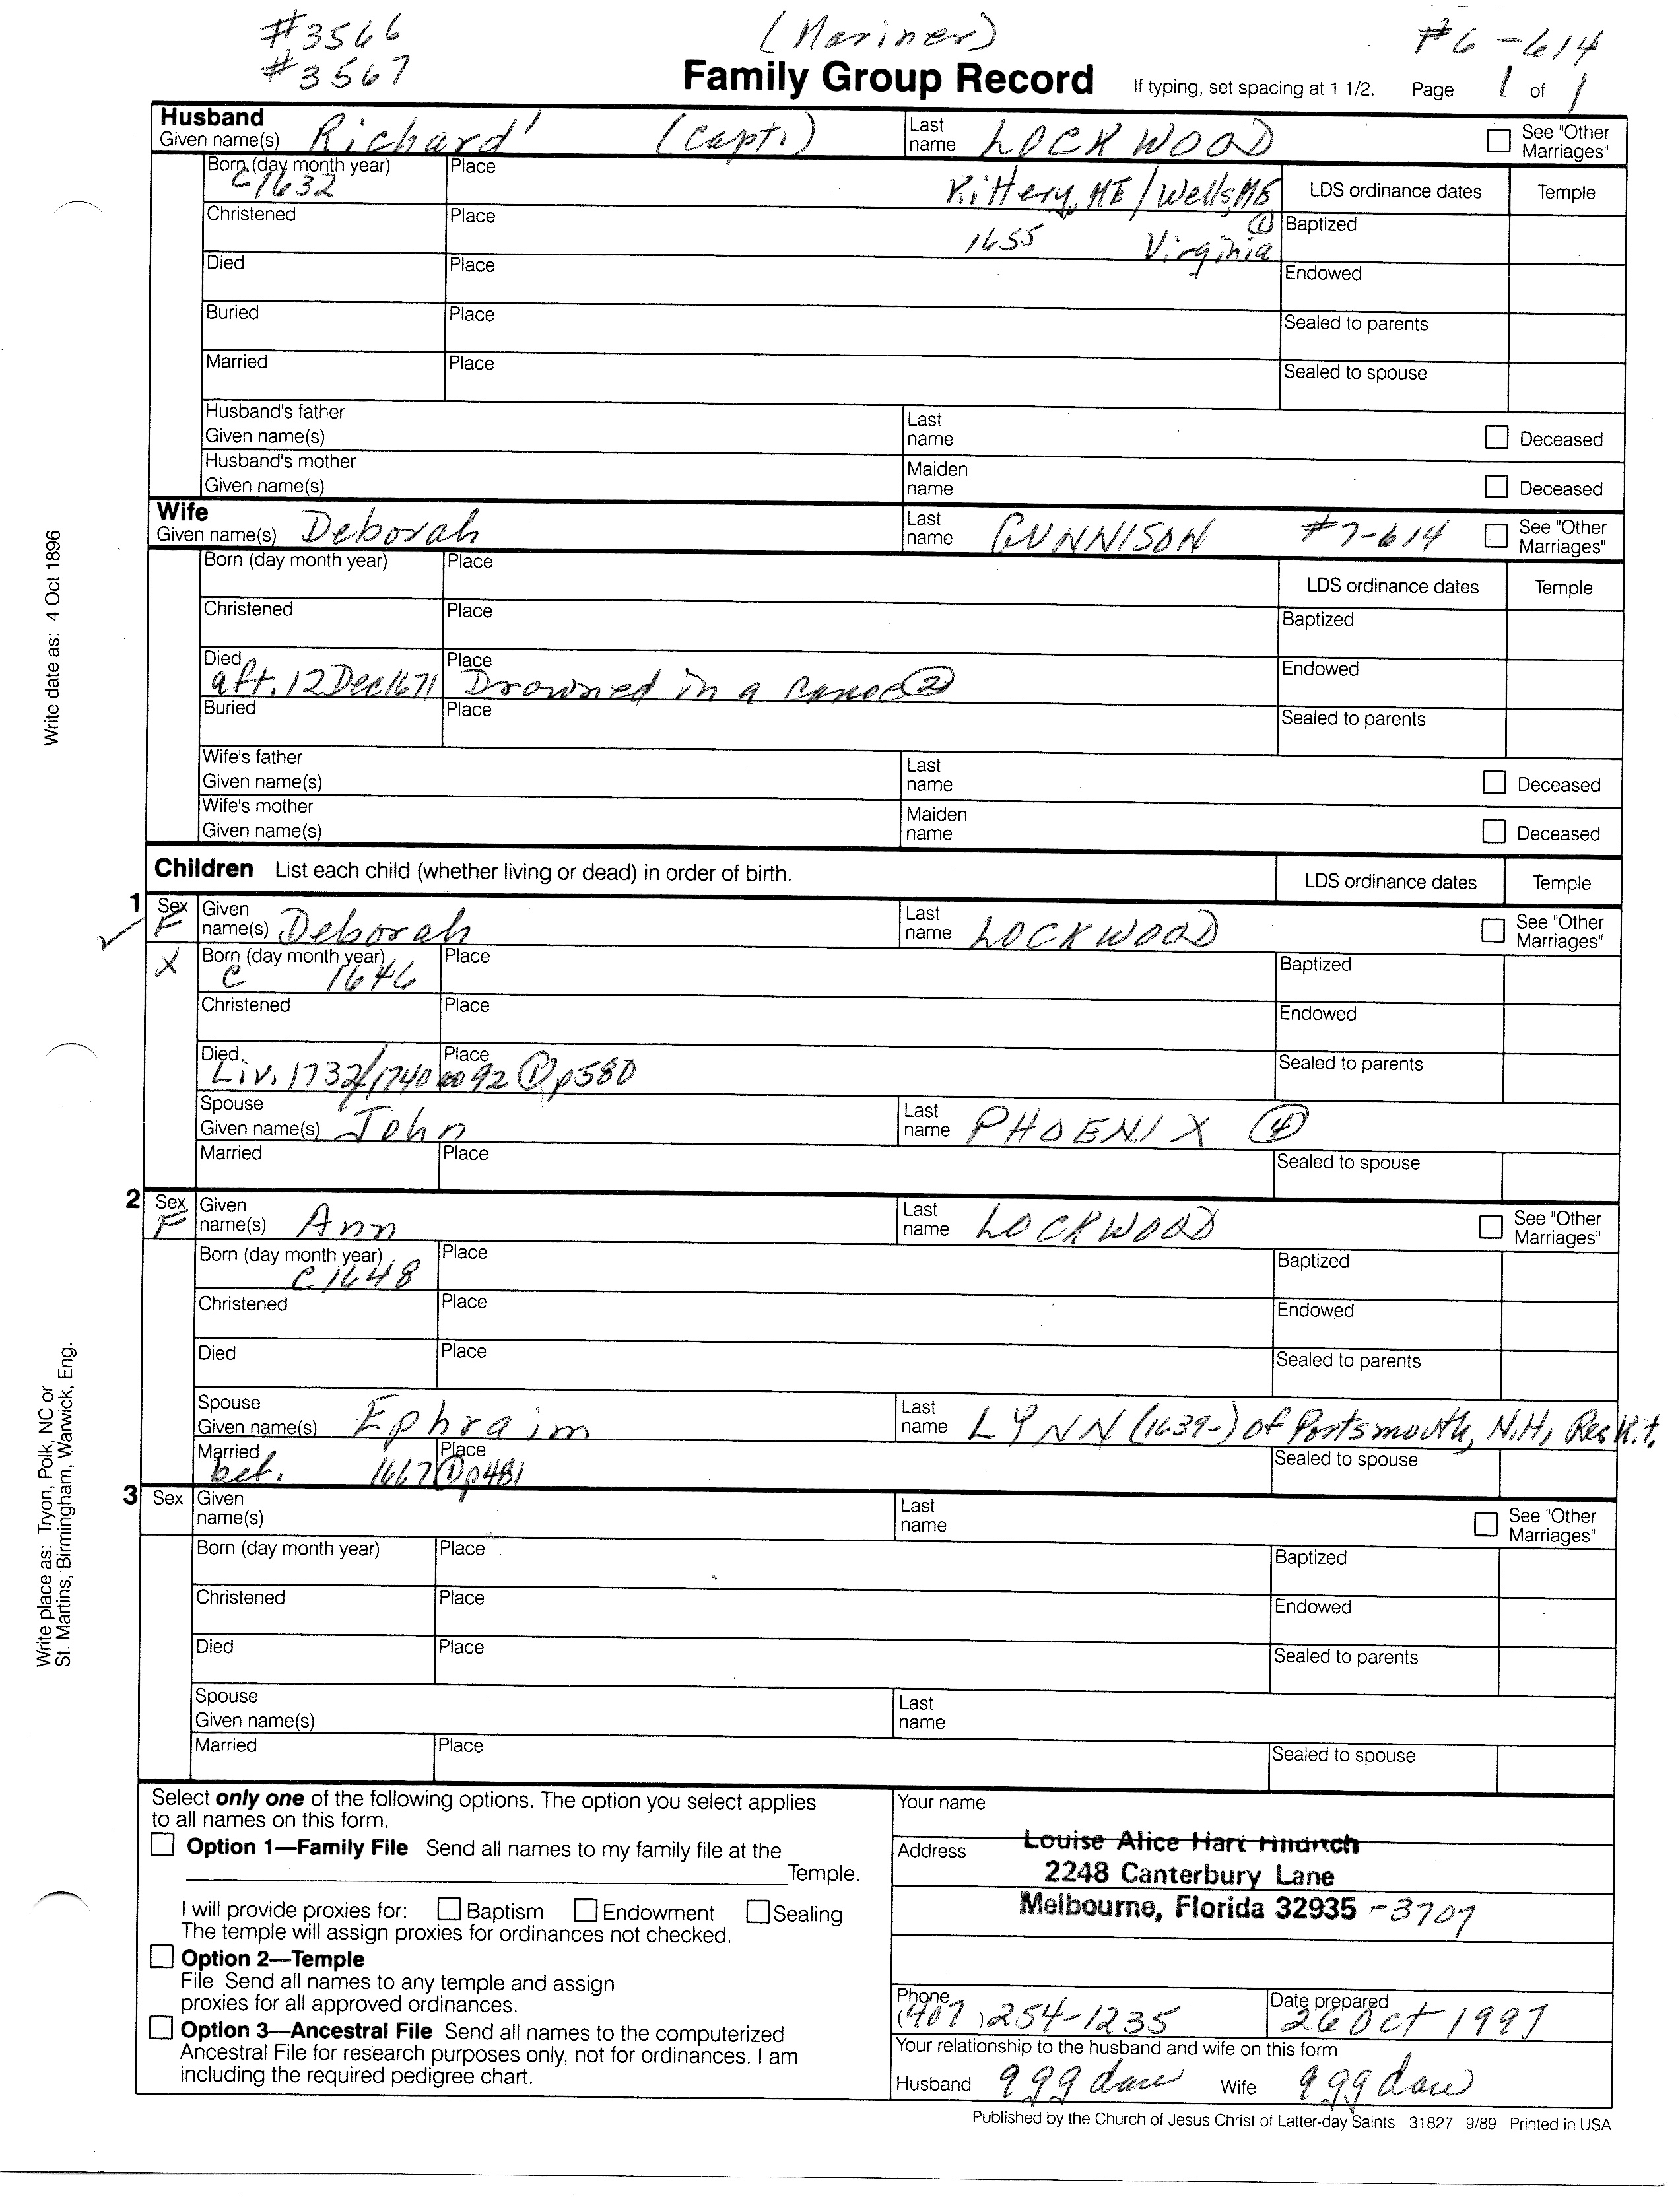 #3566 (Mariner) #6-614
#3567
Family Group Record If typing, set spacing at 1 1/2. Page 1 of 1
Husband
Given name(s) Richard' (Capt.) Last name LOCKWOOD See "Other Marriages"
Born (day month year) C1632 Place Kittery, ME/Wells, ME LDS ordinance dates Temple
Christened Place 1655 Virginia ① Baptized
Died Place Endowed
Buried Place Sealed to parents
Married Place Sealed to spouse
Husband's father
Given name(s) Last name Deceased
Husband's mother
Given name(s) Maiden name Deceased
Wife
Given name(s) Deborah Last name GUNNISON #7-614 See "Other Marriages"
Born (day month year) Place LDS ordinance dates Temple
Christened Place Baptized
Died aft. 12 Dec 1671 Place Drowned in a canoe ② Endowed
Buried Place Sealed to parents
Wife's father
Given name(s) Last name Deceased
Wife's mother
Given name(s) Maiden name Deceased
Children List each child (whether living or dead) in order of birth. LDS ordinance dates Temple
1 Sex F Given name(s) Deborah Last name LOCKWOOD See "Other Marriages"
X Born (day month year) C 1646 Place Baptized
Christened Place Endowed
Died Liv. 1732/1740 92 ① p580 Place Sealed to parents
Spouse
Given name(s) John Last name PHOENIX ④
Married Place Sealed to spouse
2 Sex F Given name(s) Ann Last name LOCKWOOD See "Other Marriages"
Born (day month year) C1648 Place Baptized
Christened Place Endowed
Died Place Sealed to parents
Spouse
Given name(s) Ephraim Last name LYNN (1639-) of Portsmouth, N.H., Res Kit.
Married bef. 1667 Place ① p481 Sealed to spouse
3 Sex Given name(s) Last name See "Other Marriages"
Born (day month year) Place Baptized
Christened Place Endowed
Died Place Sealed to parents
Spouse
Given name(s) Last name
Married Place Sealed to spouse
Select only one of the following options. The option you select applies
to all names on this form.
Option 1—Family File Send all names to my family file at the
Temple.
I will provide proxies for: Baptism Endowment Sealing
The temple will assign proxies for ordinances not checked.
Option 2—Temple
File Send all names to any temple and assign
proxies for all approved ordinances.
Option 3—Ancestral File Send all names to the computerized
Ancestral File for research purposes only, not for ordinances. I am
including the required pedigree chart.
Your name
Address Louise Alice Hart Hildrich
2248 Canterbury Lane
Melbourne, Florida 32935 -3707
Phone (407) 254-1235 Date prepared 26 Oct 1997
Your relationship to the husband and wife on this form
Husband 9 gg dau Wife 9 gg dau
Published by the Church of Jesus Christ of Latter-day Saints 31827 9/89 Printed in USA
Write date as: 4 Oct 1896
Write place as: Tryon, Polk, NC or
St. Martins, Birmingham, Warwick, Eng.